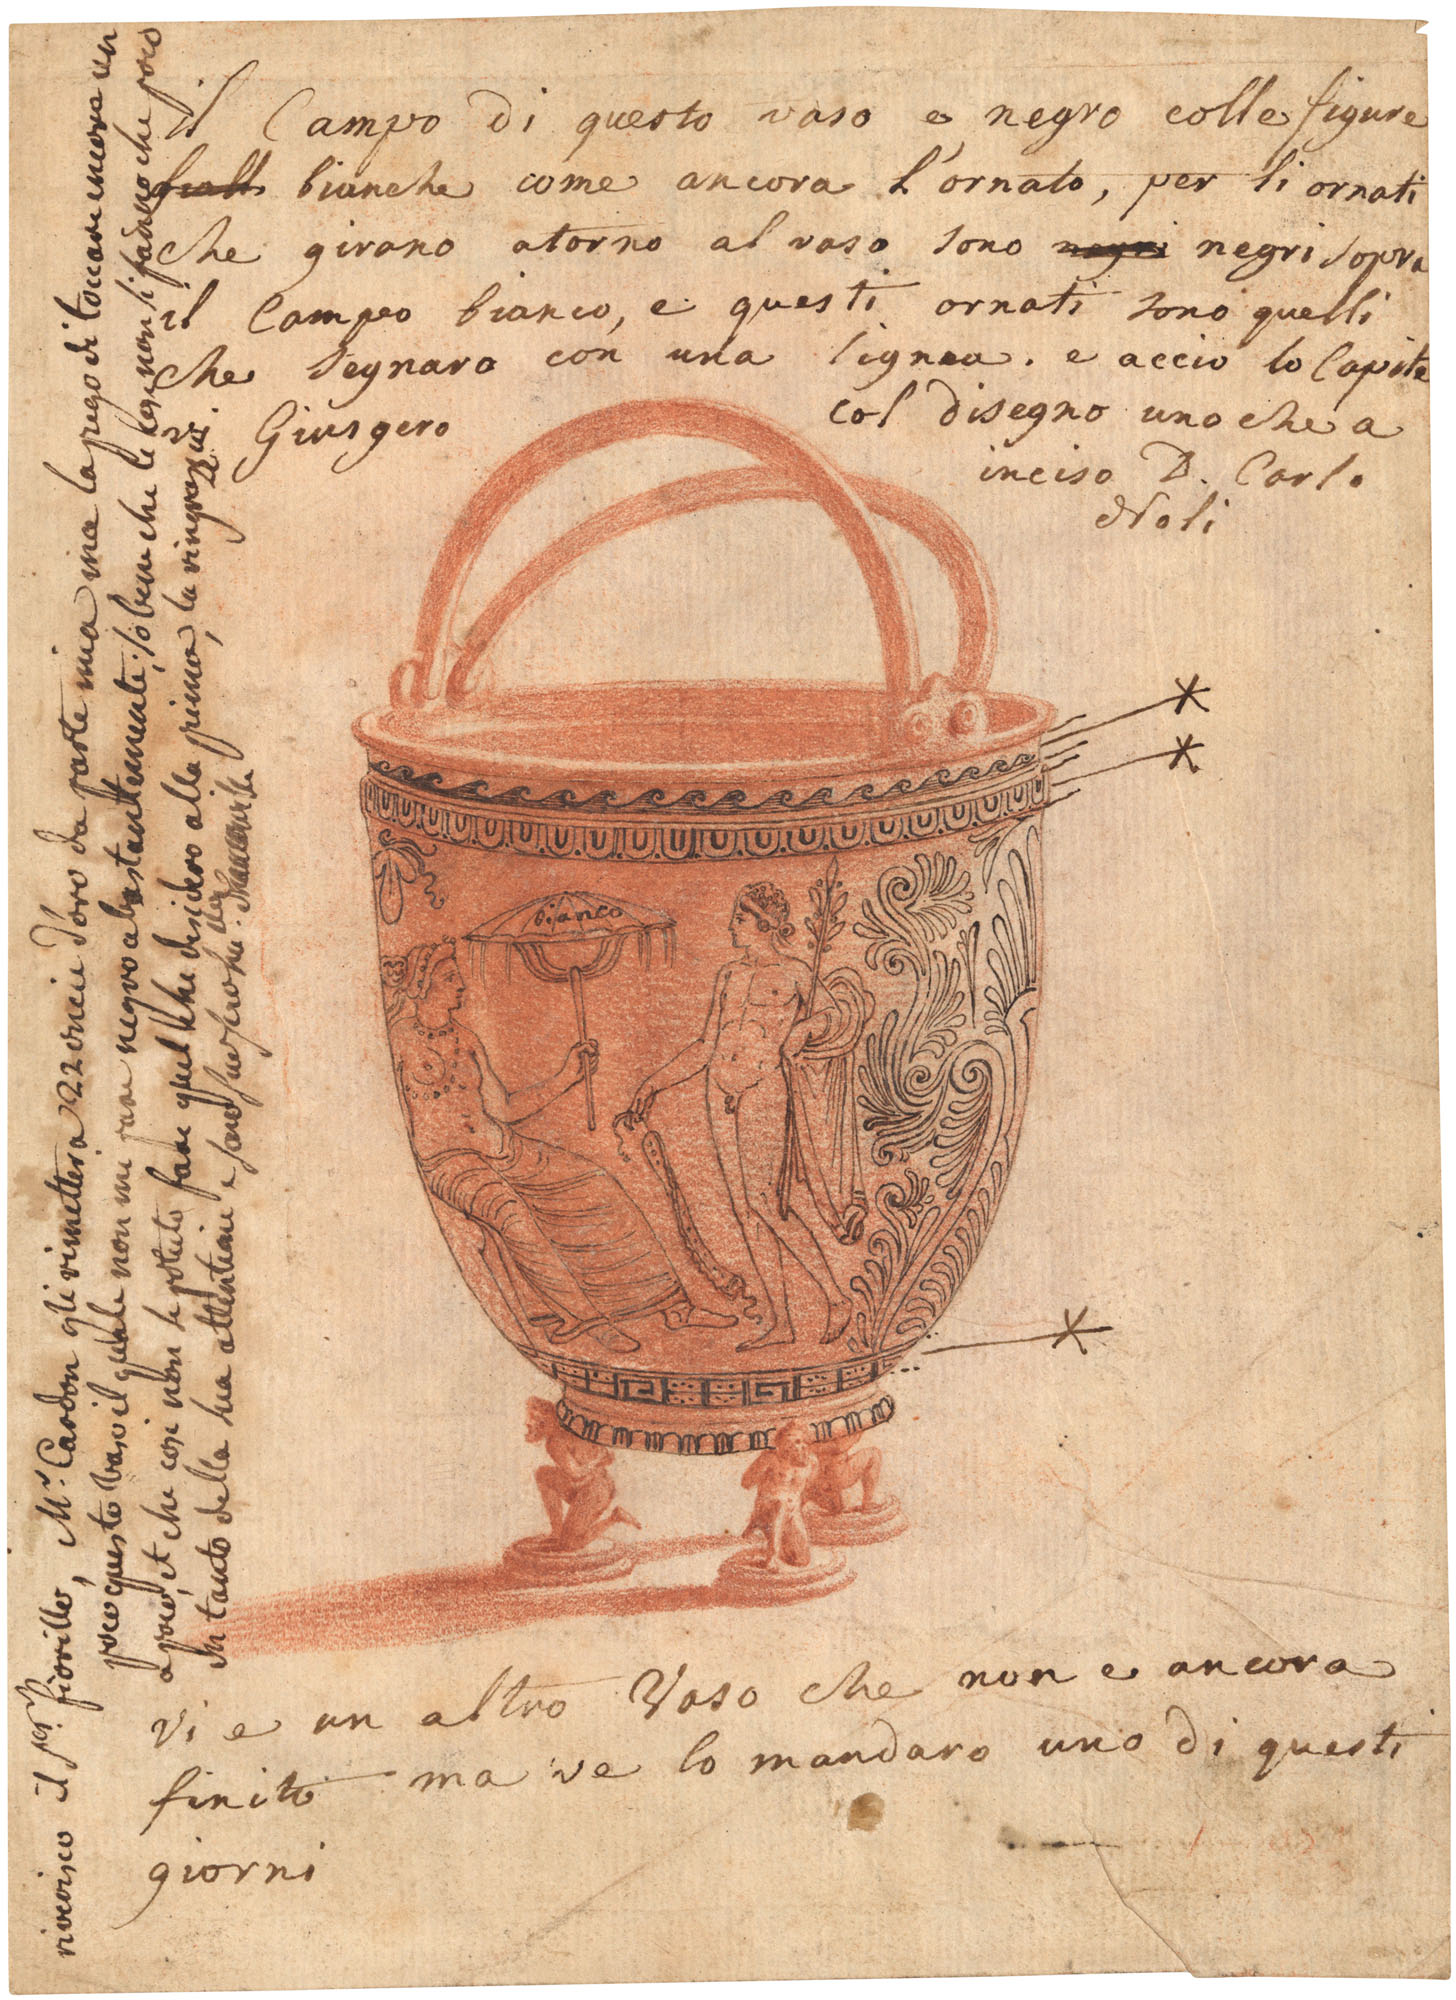 il Campo di questo vaso e negro colle figure
bianche come ancora l'ornato, per li ornati
che girano atorno al vaso sono negri negri sopra
il Campo bianco, e questi ornati sono quelli
che segnaro con una lignea. e accio lo Capite
vi Giusgero col disegno uno che a
inciso D. Carlo
Noli
bianco
vi e un altro Vaso che non e ancora
finito ma ve lo mandaro uno di questi
giorni
riverisco il fiorillo, Mr. Cardon gli rimetterà 22 oncie d'oro da parte mia ma la prego di toccare ancora un
poco questo vaso il quale non mi pare negro abastantemente, so bene che le cose non si fanno che poco
a poco, et che cosi non ha potuto fare quel che desidero alla prima, la ringrazio
in tanto della sua attentione e sono